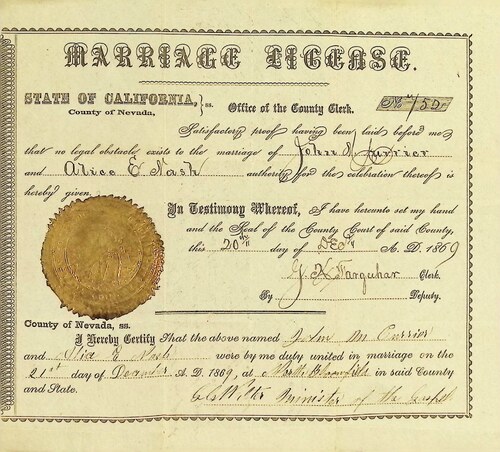 MARRIAGE LICENSE.
STATE OF CALIFORNIA, } ss. Office of the County Clerk. No 150
County of Nevada,
Satisfactory proof having been laid before me
that no legal obstacle exists to the marriage of John M Currier
and Alice E Nash authority for the celebration thereof is
hereby given.
In Testimony Whereof, I have hereunto set my hand
and the Seal of the County Court of said County,
this 20th day of Decr A. D. 1869
Farquhar Clerk.
By Deputy.
County of Nevada, ss.
I Hereby Certify That the above named John M Currier
and Alice E Nash were by me duly united in marriage on the
21st day of December A. D. 1869, at North Bloomfield in said County
and State.
Minister of the Gospel